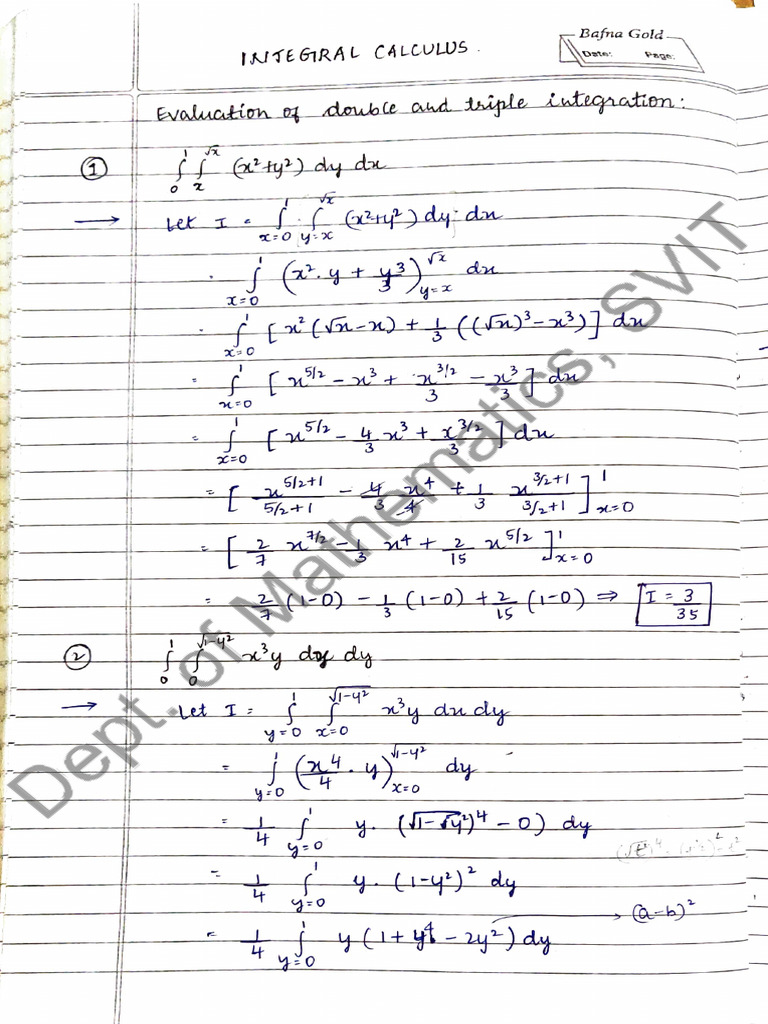 INTEGRAL CALCULUS.
Bafna Gold
Date: Page:
Evaluation of double and triple integration:
① ∫₀¹ ∫ₓ^√x (x²+y²) dy dx
→ Let I = ∫_{x=0}^{1} ∫_{y=x}^{√x} (x²+y²) dy dx
∫_{x=0}^{1} (x²·y + y³/3)_{y=x}^{√x} dx
∫_{x=0}^{1} [x²(√x-x) + 1/3 ((√x)³-x³)] dx
= ∫_{x=0}^{1} [x^{5/2} - x³ + x^{3/2}/3 - x³/3] dx
= ∫_{x=0}^{1} [x^{5/2} - 4/3 x³ + x^{3/2}/3] dx
= [x^{5/2+1}/(5/2+1) - 4/3 x⁴/4 + 1/3 x^{3/2+1}/(3/2+1)]_{x=0}^{1}
= [2/7 x^{7/2} - 1/3 x⁴ + 2/15 x^{5/2}]_{x=0}^{1}
= 2/7 (1-0) - 1/3 (1-0) + 2/15 (1-0) ⇒ I = 3/35
② ∫₀¹ ∫₀^{√1-y²} x³y dx dy
→ Let I = ∫_{y=0}^{1} ∫_{x=0}^{√1-y²} x³y dx dy
= ∫_{y=0}^{1} (x⁴/4 · y)_{x=0}^{√1-y²} dy
= 1/4 ∫_{y=0}^{1} y·(√1-√y²)⁴ - 0) dy
= 1/4 ∫_{y=0}^{1} y·(1-y²)² dy
→ (a-b)²
= 1/4 ∫_{y=0}^{1} y(1+y⁴-2y²) dy
Dept. of Mathematics, SVIT